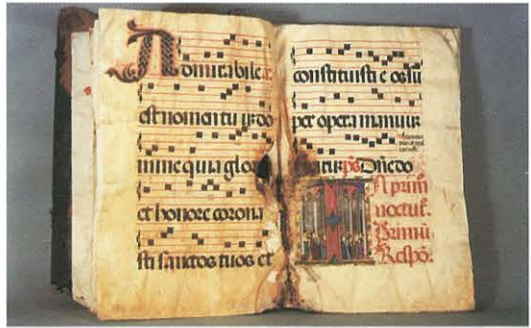 Admirabile
est nomen tuū do
mine quia glor
et honore corona
sti sanctos tuos et
constituisti e os sū
per opera manuum
ps Dñe do
primū
noctur.
Primū
Respō.